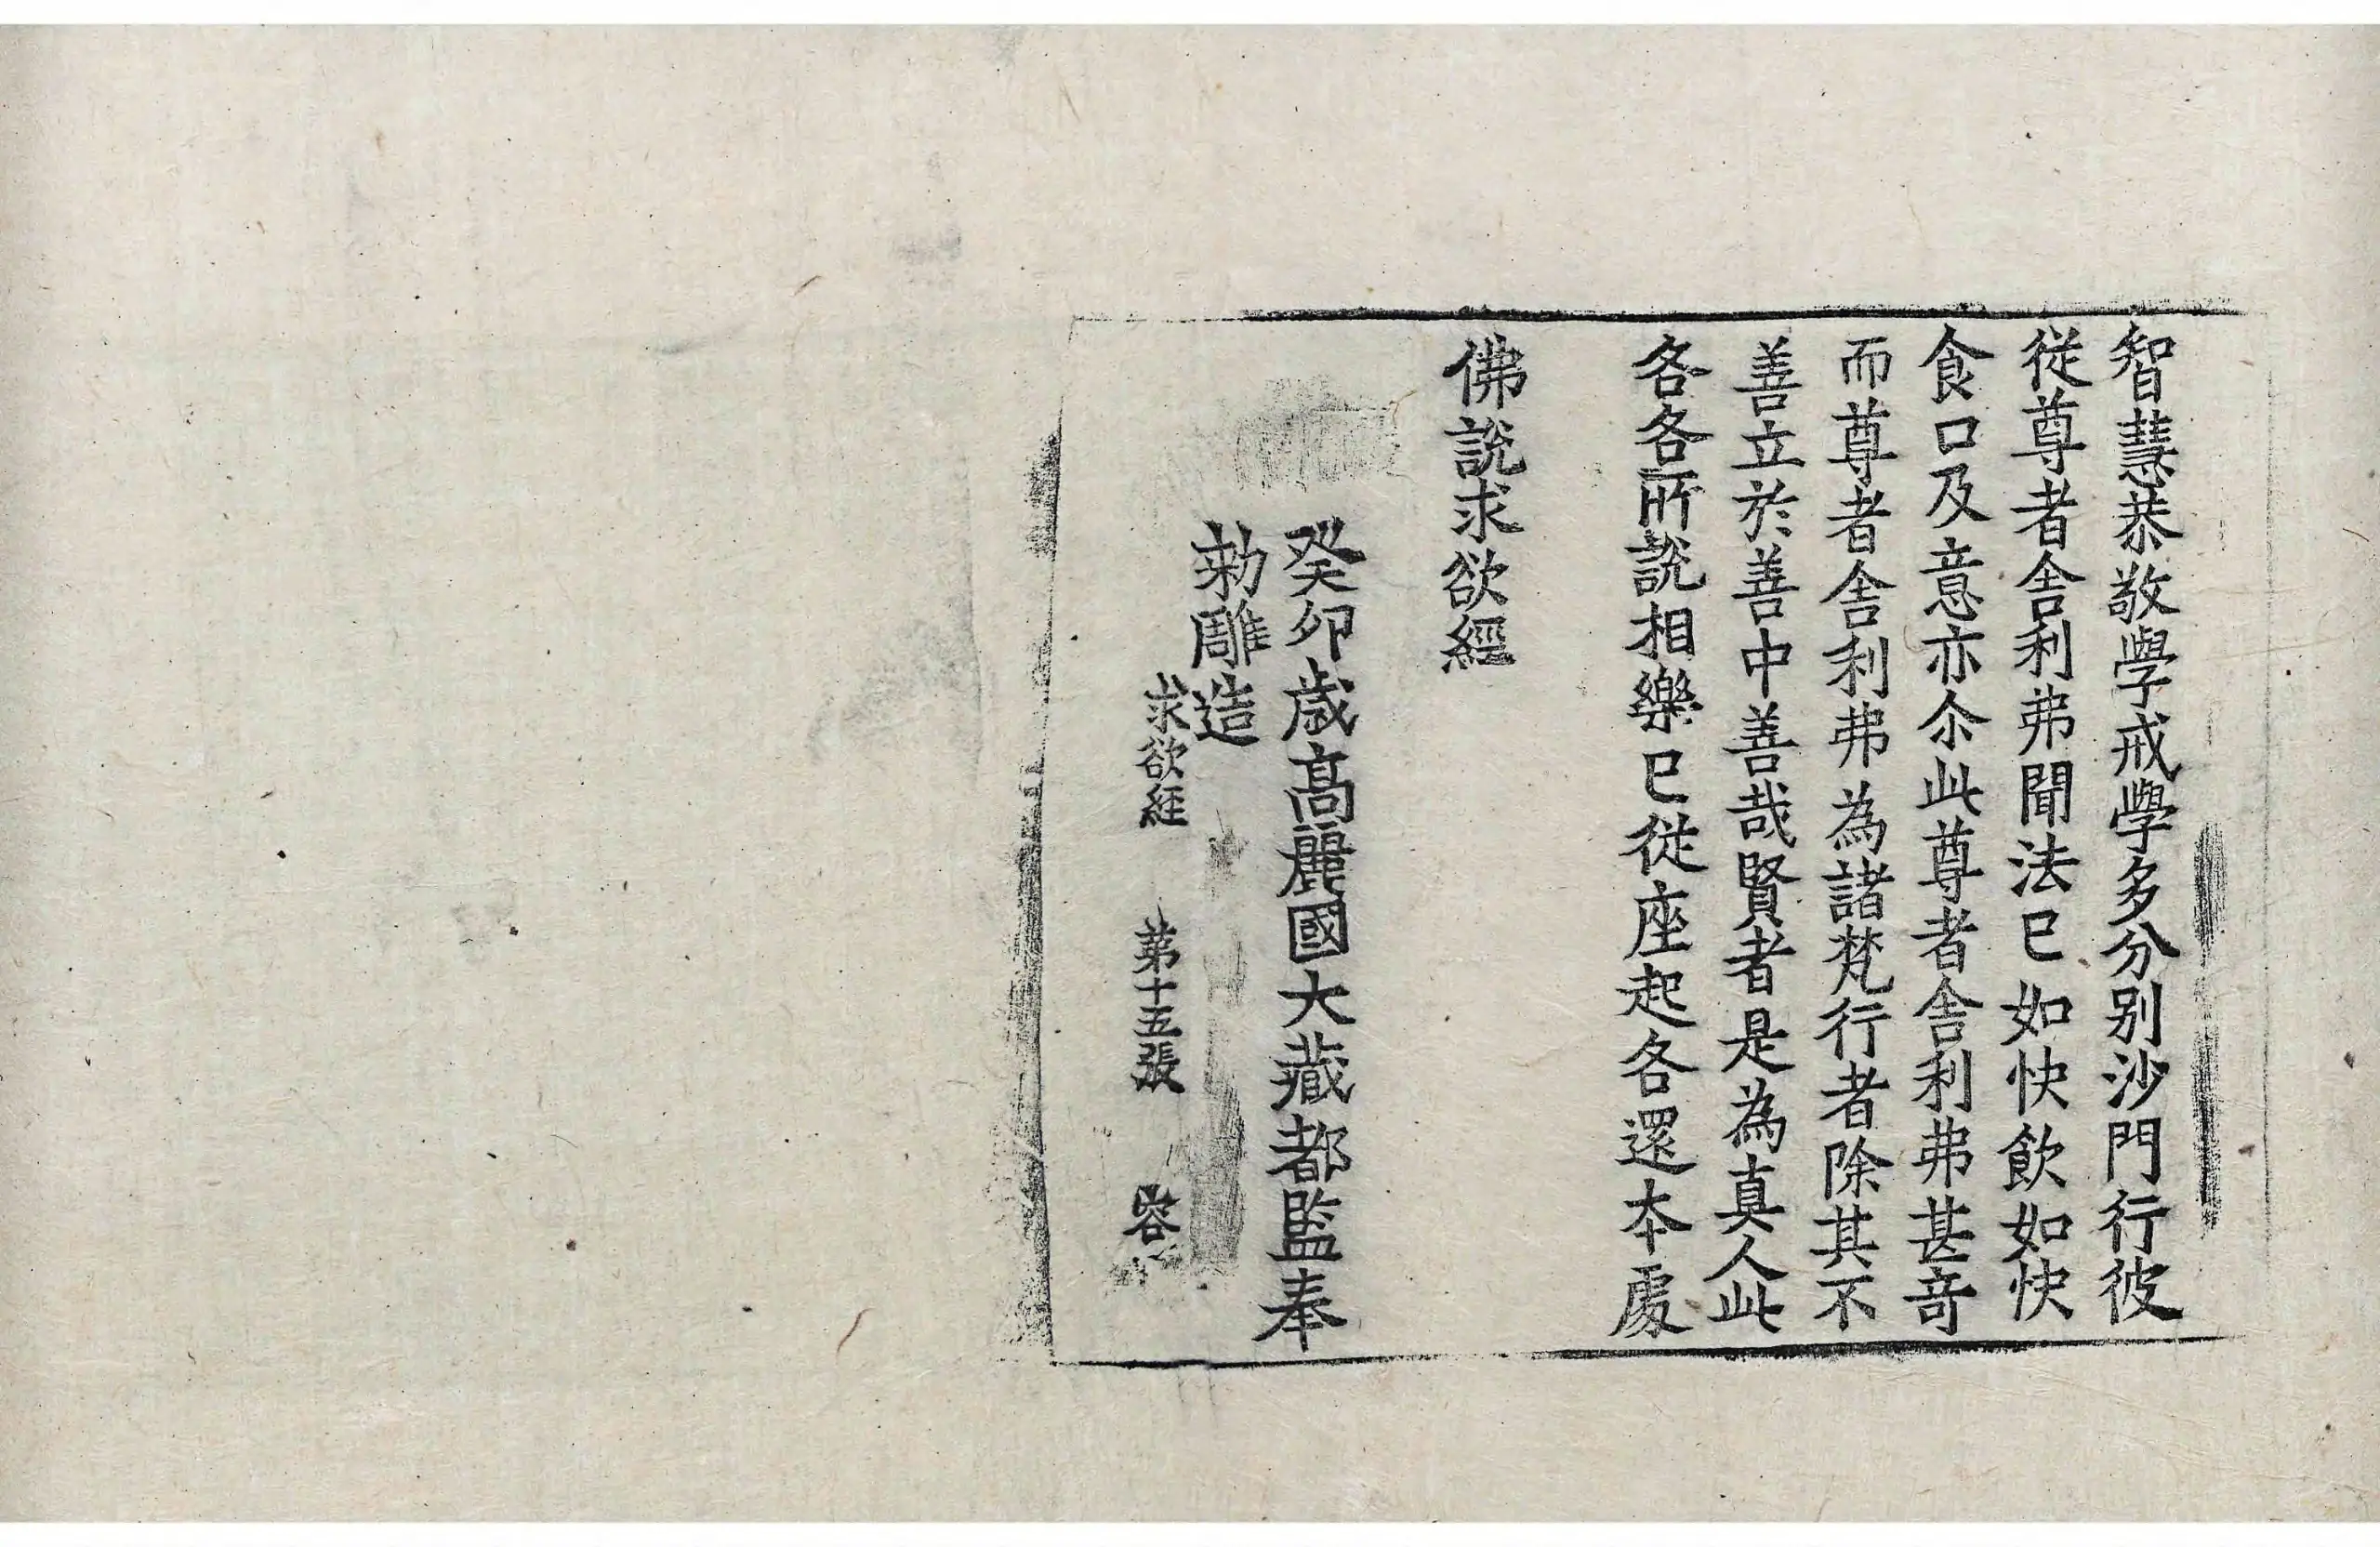 智慧恭敬學戒學多分别沙門行彼
從尊者舎利弗聞法已如快飲如快
食口及意亦尒此尊者舎利弗甚竒
而尊者舎利弗為諸梵行者除其不
善立於善中善哉賢者是為真人此
各各所說相樂已從座起各還本處
佛說求欲經
癸卯歲高麗國大藏都監奉
勑雕造
求欲經 第十五張 容